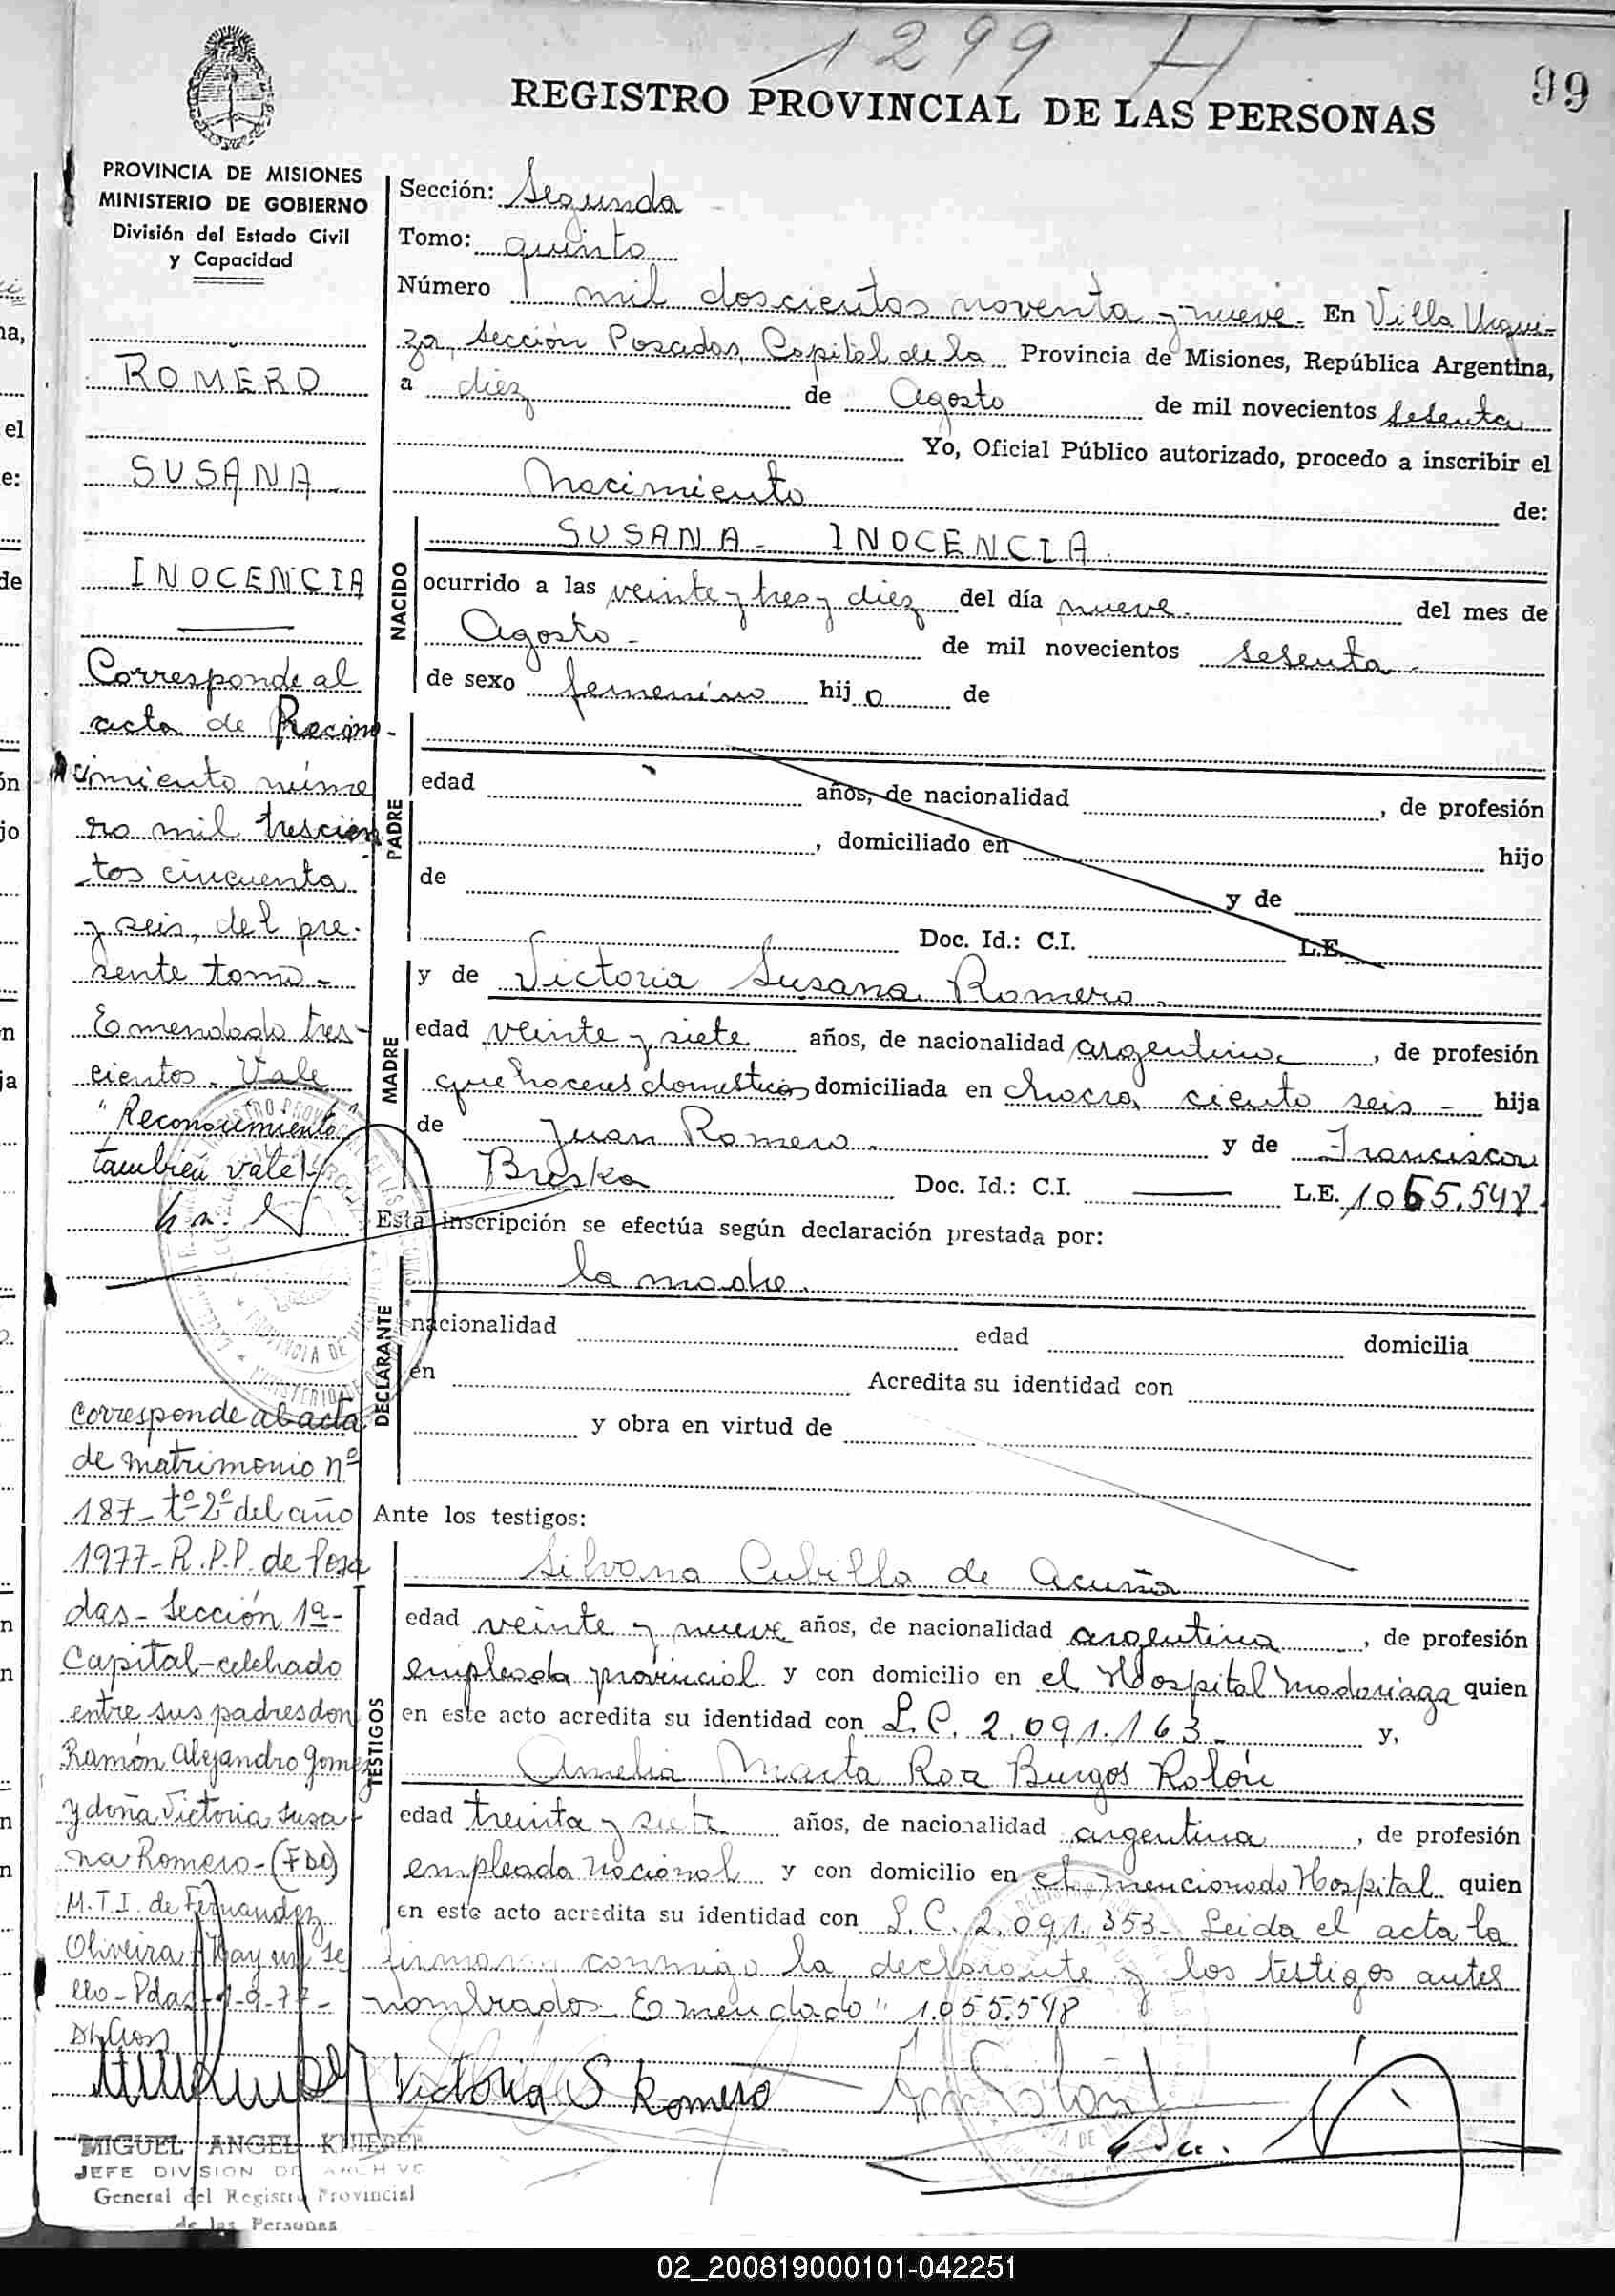 1299 H
99
REGISTRO PROVINCIAL DE LAS PERSONAS
PROVINCIA DE MISIONES
MINISTERIO DE GOBIERNO
División del Estado Civil
y Capacidad
ROMERO
SUSANA
INOCENCIA
Corresponde al
acta de Recono-
cimiento núme
ro mil trescien
tos cincuenta
y seis, del pre-
sente tomo-
Enmendado tres-
cientos. Vale
"Reconocimiento
también vale!
Corresponde al acta
de matrimonio nº
187- tº 2º del año
1977- R.P.P. de Posa
das- Sección 1ª-
Capital-celebrado
entre sus padres don
Ramón Alejandro Gomez
y doña Victoria Susa-
na Romero-(Fdo)
M.T.I. de Fernandez
Oliveira Hay un se
llo- Pdas-1-9-77-
MIGUEL ANGEL
JEFE DIVISION DE ARCHIVO
General del Registro Provincial
de las Personas
Sección: Segunda
Tomo: quinto
Número mil doscientos noventa y nueve. En Villa Urqui-
za, Sección Posadas, Capital de la Provincia de Misiones, República Argentina,
a diez de Agosto de mil novecientos sesenta
Yo, Oficial Público autorizado, procedo a inscribir el
Nacimiento de:
NACIDO
SUSANA- INOCENCIA
ocurrido a las veinte y tres y diez del día nueve. del mes de
Agosto- de mil novecientos sesenta-
de sexo femenino hijo de
PADRE
edad años, de nacionalidad , de profesión
, domiciliado en hijo
de y de
Doc. Id.: C.I. L.E.
MADRE
y de Victoria Susana Romero.
edad veinte y siete años, de nacionalidad argentina , de profesión
quehaceres domesticos domiciliada en chacra ciento seis - hija
de Juan Romero y de Francisca
Breska Doc. Id.: C.I. L.E. 1055.548.
Esta inscripción se efectúa según declaración prestada por:
DECLARANTE
la madre.
nacionalidad edad domicilia
en Acredita su identidad con
y obra en virtud de
Ante los testigos:
TESTIGOS
Silvana Cubilla de Acuña
edad veinte y nueve años, de nacionalidad argentina , de profesión
empleada provincial y con domicilio en el Hospital Madariaga quien
en este acto acredita su identidad con L.C. 2.091.163- y,
Amelia Marta Roa Burgos Rolón
edad treinta y siete años, de nacionalidad argentina , de profesión
empleada Nacional y con domicilio en el mencionado Hospital quien
en este acto acredita su identidad con L.C. 2.091.353- Leida el acta la
firman conmigo la declarante y los testigos antes
nombrados- Enmendado" 1.055.548
Victoria S Romero
02_200819000101-042251